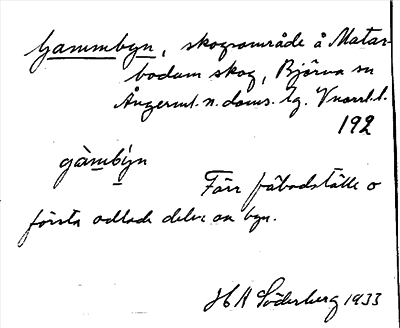 Gammbyn, skogsområde å Matar-
bodum skog, Björna sn
Ångerml. n. doms. lg. Vnorrl. l.
192
gàmb́yn
Förr fäbodställe o
första odlade delen av byn.
H A Söderberg 1933